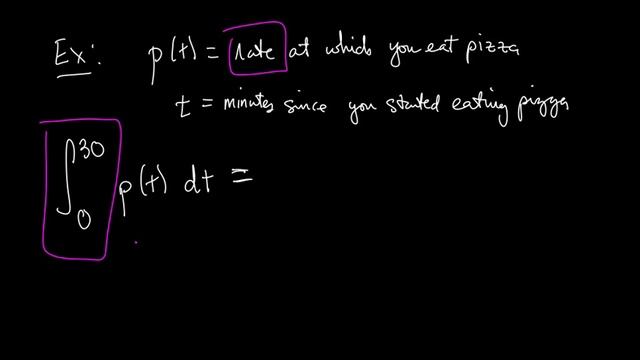 Ex: p(t) = rate at which you eat pizza
t = minutes since you started eating pizza
∫₀³⁰ p(t) dt =